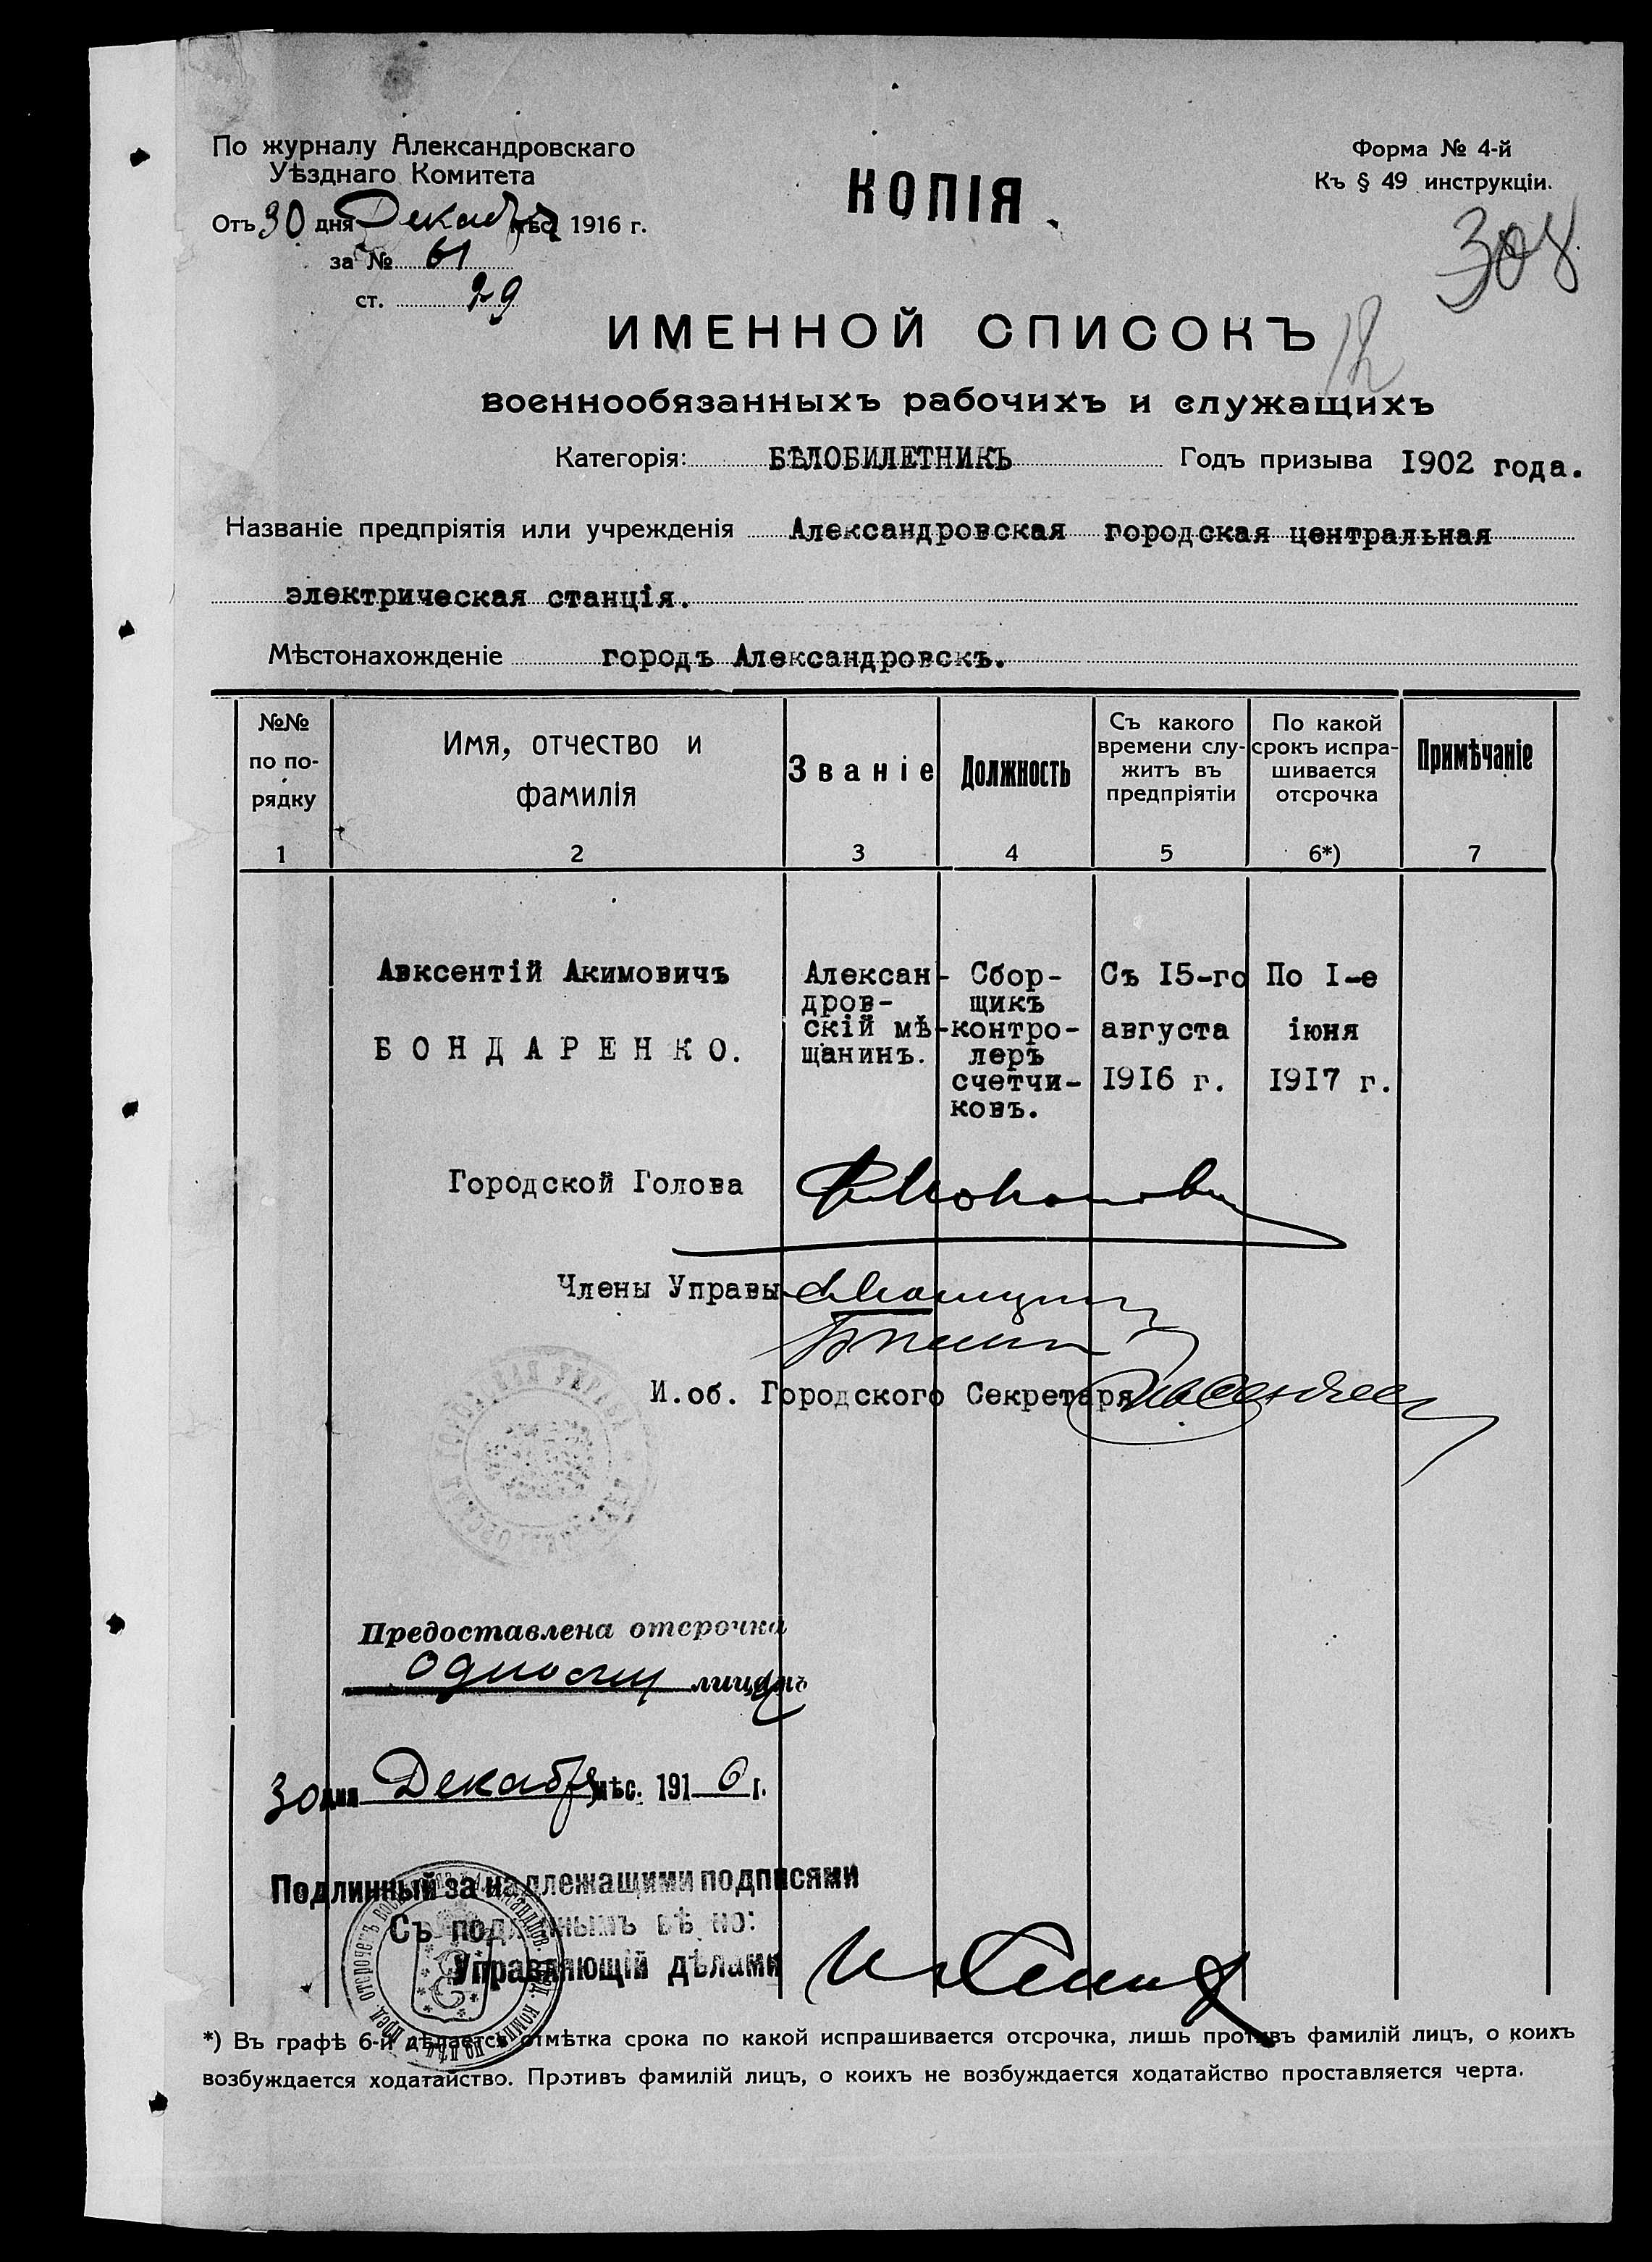 По журналу Александровскаго
Уѣзднаго Комитета
Отъ 30 дня Декабря мѣс. 1916 г.
за № 61
ст. 29
КОПІЯ.
Форма № 4-й
Къ § 49 инструкціи.
308
12
ИМЕННОЙ СПИСОКЪ
военнообязанныхъ рабочихъ и служащихъ
Категорія: БѢЛОБИЛЕТНИКЪ Годъ призыва 1902 года.
Названіе предпріятія или учрежденія Александровская городская центральная
электрическая станція.
Мѣстонахожденіе городъ Александровскъ.
№№ по по-рядку
Имя, отчество и фамилія
Званіе
Должность
Съ какого времени слу-житъ въ предпріятіи
По какой срокъ испра-шивается отсрочка
Примѣчаніе
1 2 3 4 5 6*) 7
Авксентій Акимовичъ
БОНДАРЕНКО.
Алексан-
дров-
скій мѣ-
щанинъ.
Сбор-
щикъ
контро-
леръ
счетчи-
ковъ.
Съ 15-го
августа
1916 г.
По 1-е
іюня
1917 г.
Городской Голова
Члены Управы
И.об. Городского Секретаря
Предоставлена отсрочка
одному лицу
30 дня Декабря мѣс. 1916 г.
Подлинный за надлежащими подписями
Съ подлиннымъ вѣрно:
Управляющій дѣлами
*) Въ графѣ 6-й дѣлается отмѣтка срока по какой испрашивается отсрочка, лишь противъ фамилій лицъ, о коихъ
возбуждается ходатайство. Противъ фамилій лицъ, о коихъ не возбуждается ходатайство проставляется черта.